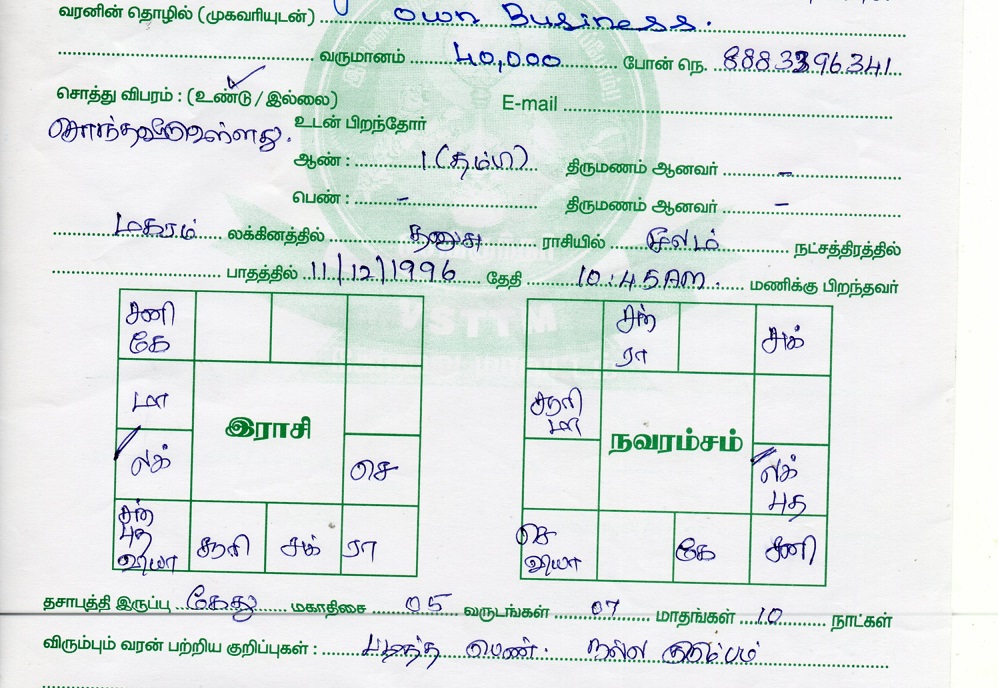 வரனின் தொழில் (முகவரியுடன்) Own Business.
வருமானம் 40,000 போன் நெ. 8883396341
சொத்து விபரம் : (உண்டு / இல்லை) E-mail
உடன் பிறந்தோர்
ஆண் : 1 (தம்பி) திருமணம் ஆனவர் -
பெண் : - திருமணம் ஆனவர் -
மகரம் லக்கினத்தில் தனுசு ராசியில் மூலம் நட்சத்திரத்தில்
பாதத்தில் 11/12/1996 தேதி 10:45AM. மணிக்கு பிறந்தவர்
VSTTM
சனி சந் சுக்
கே ரா
மா சூரி
மா
இராசி நவரம்சம்
லக் செ லக்
புத
சந்
புத
வியா சூரி சுக் ரா செ
வியா கே சனி
தசாபுத்தி இருப்பு கேது மகாதிசை 05 வருடங்கள் 07 மாதங்கள் 10 நாட்கள்
விரும்பும் வரன் பற்றிய குறிப்புகள் : படித்த பெண். நல்ல குடும்பம்